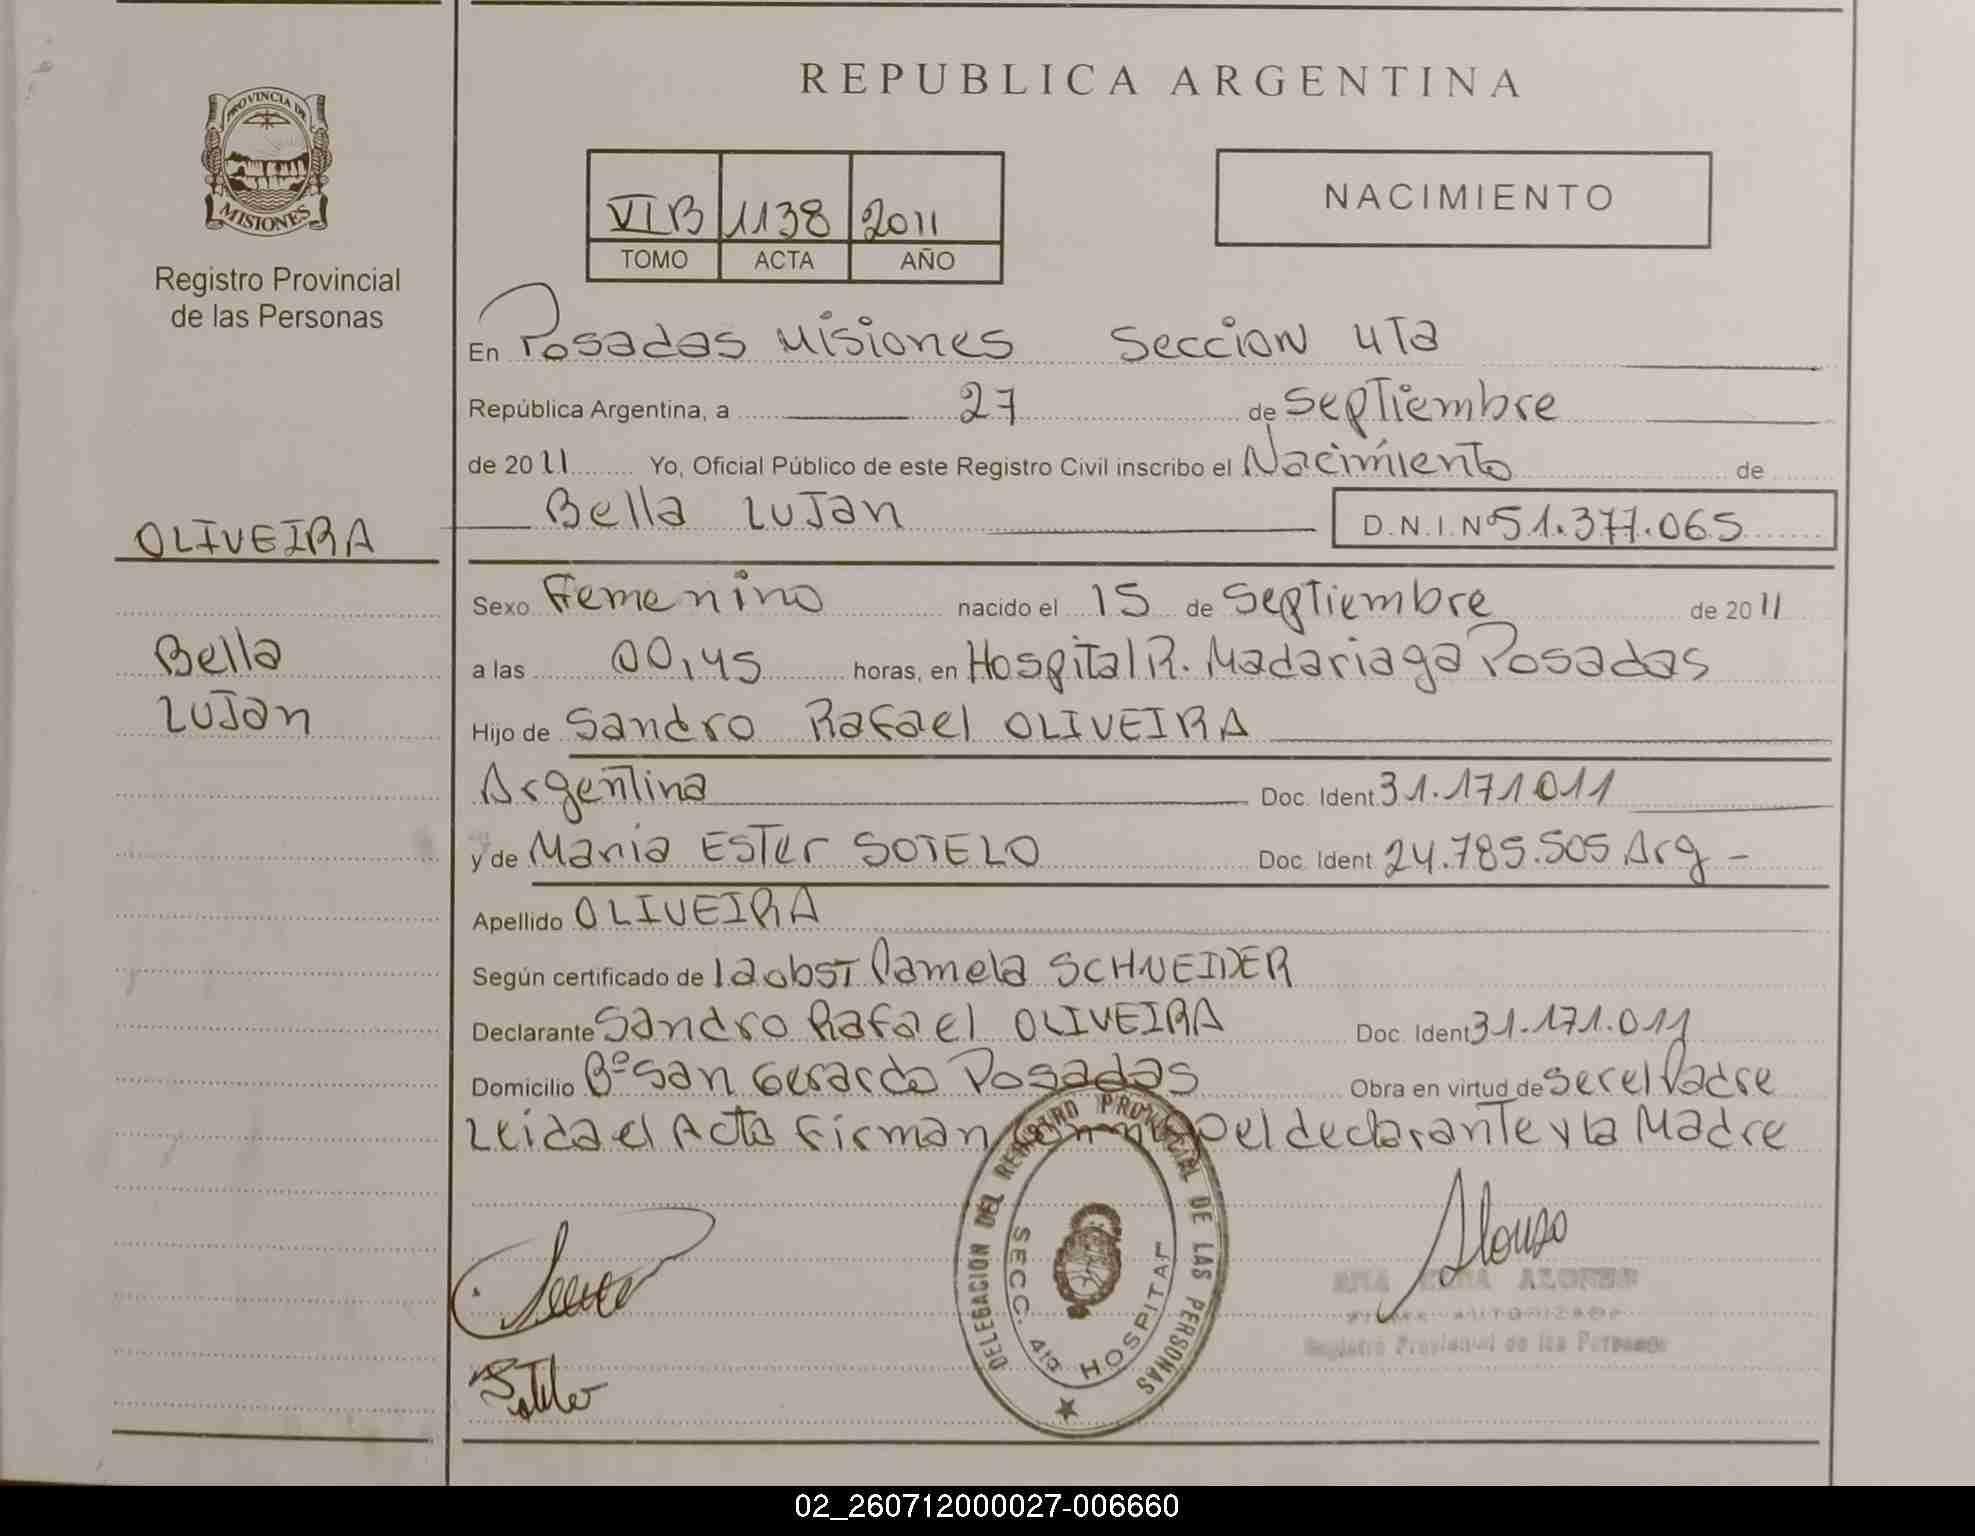 REPUBLICA ARGENTINA
PROVINCIA DE
MISIONES
Registro Provincial
de las Personas
VI B 1138 2011
TOMO ACTA AÑO
NACIMIENTO
En Posadas Misiones Seccion 4Ta
República Argentina, a 27 de Septiembre
de 2011 Yo, Oficial Público de este Registro Civil inscribo el Nacimiento de
Bella LuJan D.N.I.Nº 51.377.065
OLIVEIRA
Bella
LuJan
Sexo Femenino nacido el 15 de Septiembre de 2011
a las 00,45 horas, en Hospital R. Madariaga Posadas
Hijo de Sandro Rafael OLIVEIRA
Argentina Doc. Ident. 31.171.011
y de Maria Ester SOTELO Doc. Ident. 24.785.505 Arg -
Apellido OLIVEIRA
Según certificado de la obst Pamela SCHNEIDER
Declarante Sandro Rafael OLIVEIRA Doc. Ident 31.171.011
Domicilio Bº San Gerardo Posadas Obra en virtud de ser el Padre
Leida el Acta Firman el declarante y la Madre
DELEGACION DEL REGISTRO PROVINCIAL DE LAS PERSONAS
SECC. 4ta HOSPITAL
Alonso
ALONSO
Registro Provincial de las Personas
02_260712000027-006660